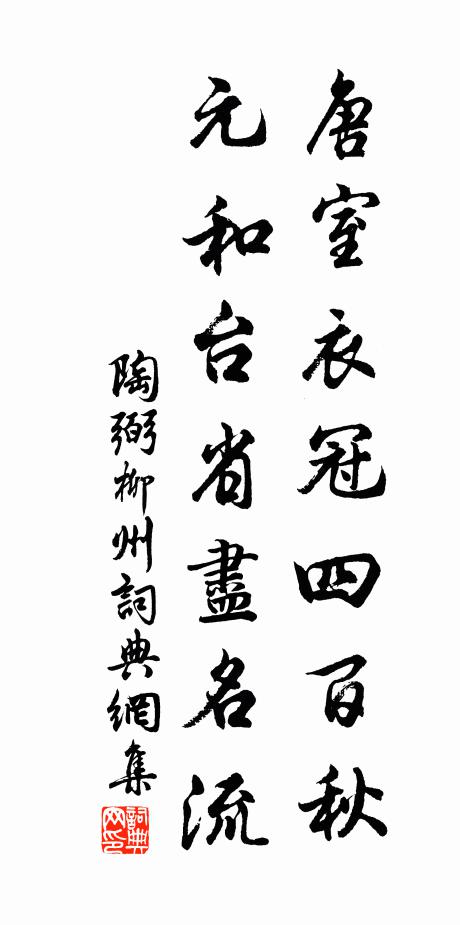 唐室衣冠四百秋
元和台省盡名流
陶弼柳州詞典網集
詞典網印